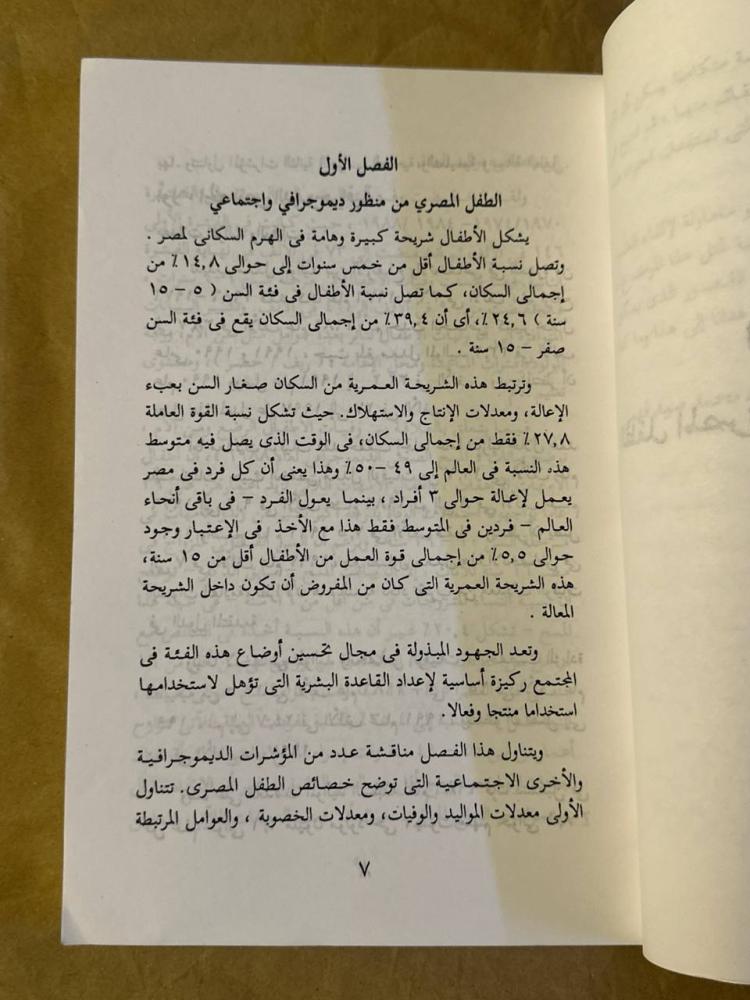 الفصل الأول
الطفل المصري من منظور ديموجرافي واجتماعي
يشكل الأطفال شريحة كبيرة وهامة فى الهرم السكانى لمصر .
وتصل نسبة الأطفال أقل من خمس سنوات إلى حوالى ١٤,٨٪ من
إجمالى السكان، كما تصل نسبة الأطفال فى فئة السن ( ٥ – ١٥
سنة ) ٢٤,٦٪، أى أن ٣٩,٤٪ من إجمالى السكان يقع فى فئة السن
صفر – ١٥ سنة .
وترتبط هذه الشريحة العمرية من السكان صغار السن بعبء
الإعالة، ومعدلات الإنتاج والاستهلاك. حيث تشكل نسبة القوة العاملة
٢٧,٨٪ فقط من إجمالى السكان، فى الوقت الذى يصل فيه متوسط
هذه النسبة فى العالم إلى ٤٩ –٥٠٪ وهذا يعنى أن كل فرد فى مصر
يعمل لإعالة حوالى ٣ أفراد ، بينما يعول الفرد – فى باقى أنحاء
العالم – فردين فى المتوسط فقط هذا مع الأخذ فى الإعتبار وجود
حوالى ٥,٥٪ من إجمالى قوة العمل من الأطفال أقل من ١٥ سنة،
هذه الشريحة العمرية التى كان من المفروض أن تكون داخل الشريحة
المعالة .
وتعد الجهود المبذولة فى مجال تحسين أوضاع هذه الفئة فى
المجتمع ركيزة أساسية لإعداد القاعدة البشرية التى تؤهل لاستخدامها
استخداما منتجا وفعالا.
ويتناول هذا الفصل مناقشة عدد من المؤشرات الديموجرافية
والأخرى الاجتماعية التى توضح خصائص الطفل المصرى. تتناول
الأولى معدلات المواليد والوفيات، ومعدلات الخصوبة ، والعوامل المرتبطة
٧